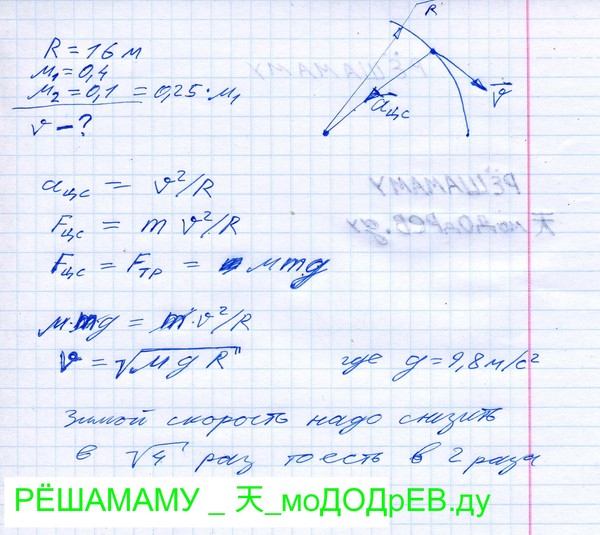 R = 16 м
μ₁ = 0,4
μ₂ = 0,1 = 0,25·μ₁
v - ?
R
a⃗цс
v⃗
РЁШАМАМУ
РЁШАМАМУ
天моДОДрЕВ.ду
aцс = v²/R
Fцс = m v²/R
Fцс = Fтр = μmg
μ·mg = m·v²/R
v = √μgR где g = 9,8 м/с²
Зимой скорость надо снизить
в √4 раз то есть в 2 раза
РЁШАМАМУ _ 天_моДОДрЕВ.ду